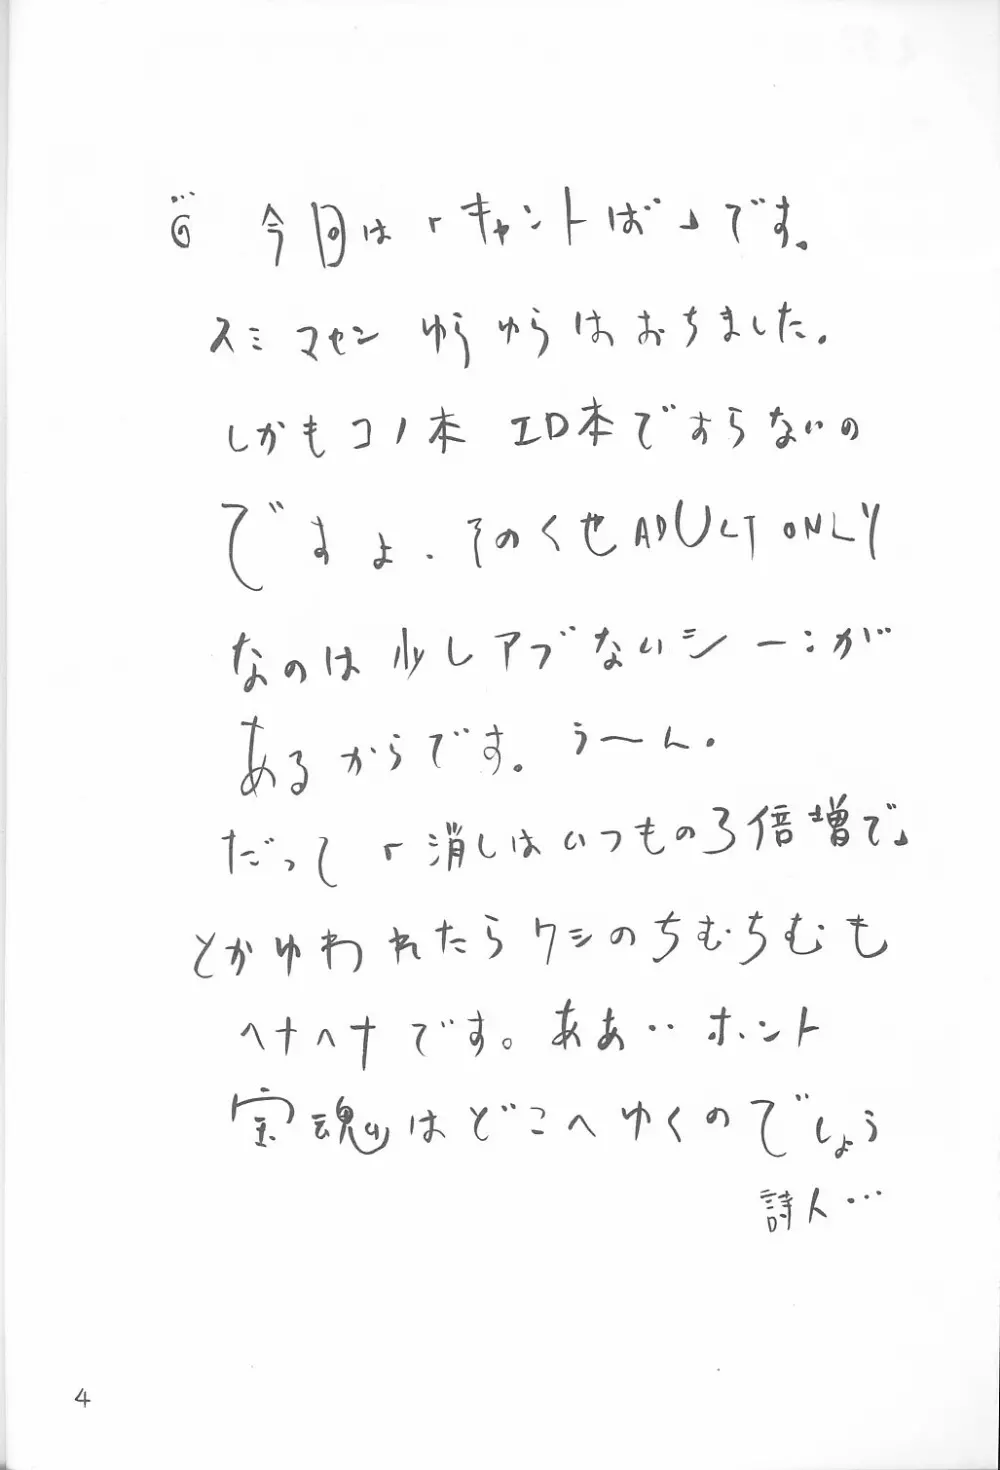 今回は「キャントば」です。
スミマセン ゆらゆらはおちました。
しかもコノ本 エロ本ですらないの
ですよ. そのくせADULT ONLY
なのは少しアブないシーンが
あるからです。う〜ん.
だって「消しはいつもの3倍増で」
とかゆわれたらワシのちむちむも
ヘナヘナです。ああ‥ホント
宝魂はどこへゆくのでしょう
詩人…
4